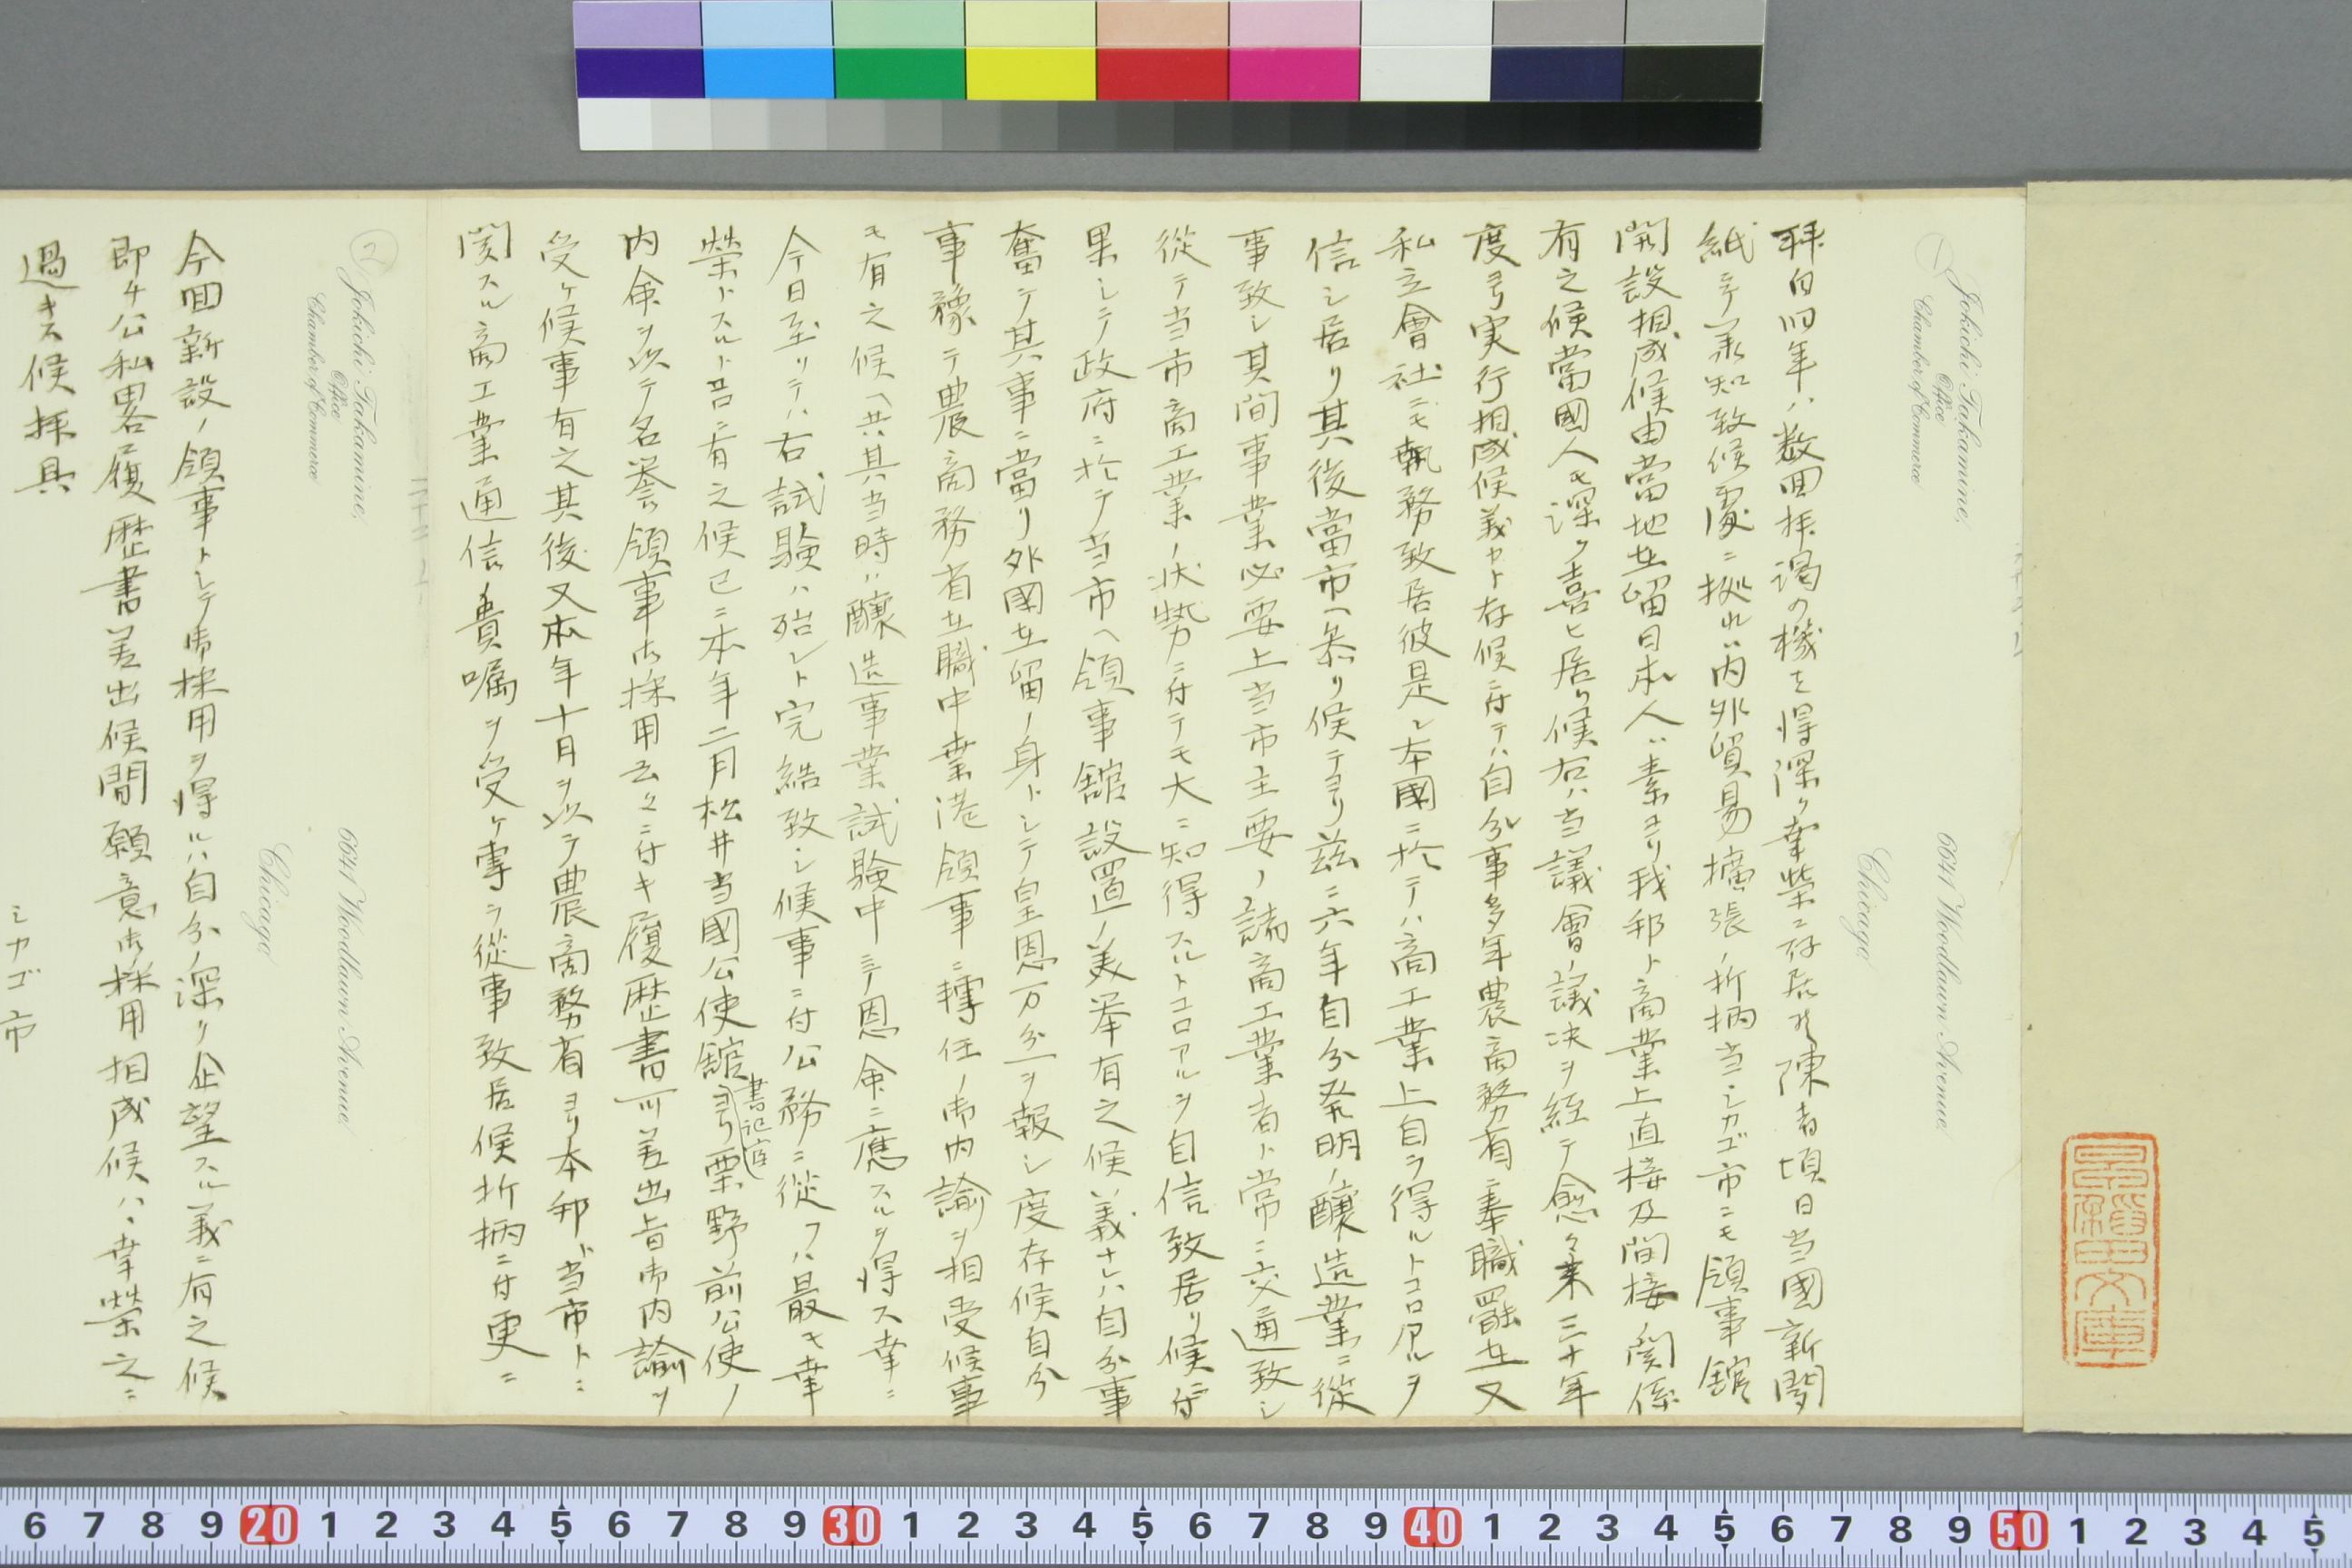 Jokichi Takamine,
Office
Chamber of Commerce
6641 Woodlawn Avenue
Chicago
拝白旧年ハ数回拝謁の機を得深ク幸栄ニ存居候陳者頃日当國新聞
紙ニテ承知致候處ニ拠レハ内外貿易擴張ノ折柄当シカゴ市ニモ領事舘
開設相成候由當地在留日本人ハ素ヨリ我邦ト商業上直接及間接ノ関係
有之候當國人モ深ク喜ヒ居リ候右ハ当議會ノ議决ヲ経テ愈々来三十年
度ヨリ実行相成候義カト存候ニ付テハ自分事多年農商務省ニ奉職罷在又
私立會社ニモ執務致居彼是レ本國ニ於テハ商工業上自ラ得ルトコロアルヲ
信シ居リ其後當市ヘ参リ候テヨリ茲ニ六年自分発明ノ醸造業ニ従
事致シ其間事業必要上当市主要ノ諸商工業者ト常ニ交通致シ
従テ当市商工業ノ状勢ニ付テモ大ニ知得スルトコロアルヲ自信致居リ候ニ付
果シテ政府ニ於テ当市ヘ領事舘設置ノ美挙有之候義ナレハ自分事
奮テ其事ニ當リ外國在留ノ身トシテ皇恩万分一ヲ報シ度存候自分
事豫テ農商務省在職中葉港領事ニ轉任ノ御内諭ヲ相受候事
モ有之候ヘ共其当時ハ醸造事業試験中ニテ恩命ニ應スルヲ得ス幸ニ
今日至リテハ右試験ハ殆ント完結致シ候事ニ付公務ニ従フハ最モ幸
榮トスルトコロニ有之候已ニ本年二月松井当國公使舘書記官ヨリ栗野前公使ノ
内命ヲ以テ名誉領事ニ御採用云々ニ付キ履歴書可差出旨御内諭ヲ
受ケ候事有之其後又本年十月ヲ以テ農商務省ヨリ本邦ト当市トニ
関スル商工業通信ノ貴嘱ヲ受ケ専ラ従事致居候折柄ニ付更ニ
二
Jokichi Takamine,
Office
Chamber of Commerce
6641 Woodlawn Avenue
Chicago
今回新設ノ領事トシテ御採用ヲ得ルハ自分ノ深ク企望スル義ニ有之候
即チ公私畧履歴書差出候間願意御採用相成候ハヽ幸榮之ニ
過キス候拝具
シカゴ市
20 30 40 50